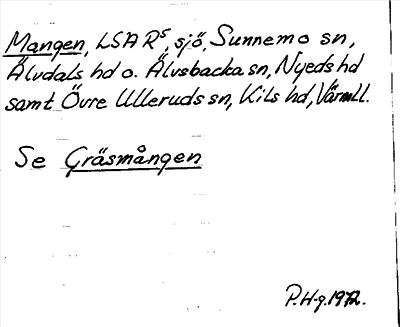 Mangen, LSA R⁵, sjö, Sunnemo sn,
Älvdals hd o. Älvsbacka sn, Nyeds hd
samt Övre Ulleruds sn, Kils hd, Värmll.
Se Gräsmången
P.H-g. 1972.